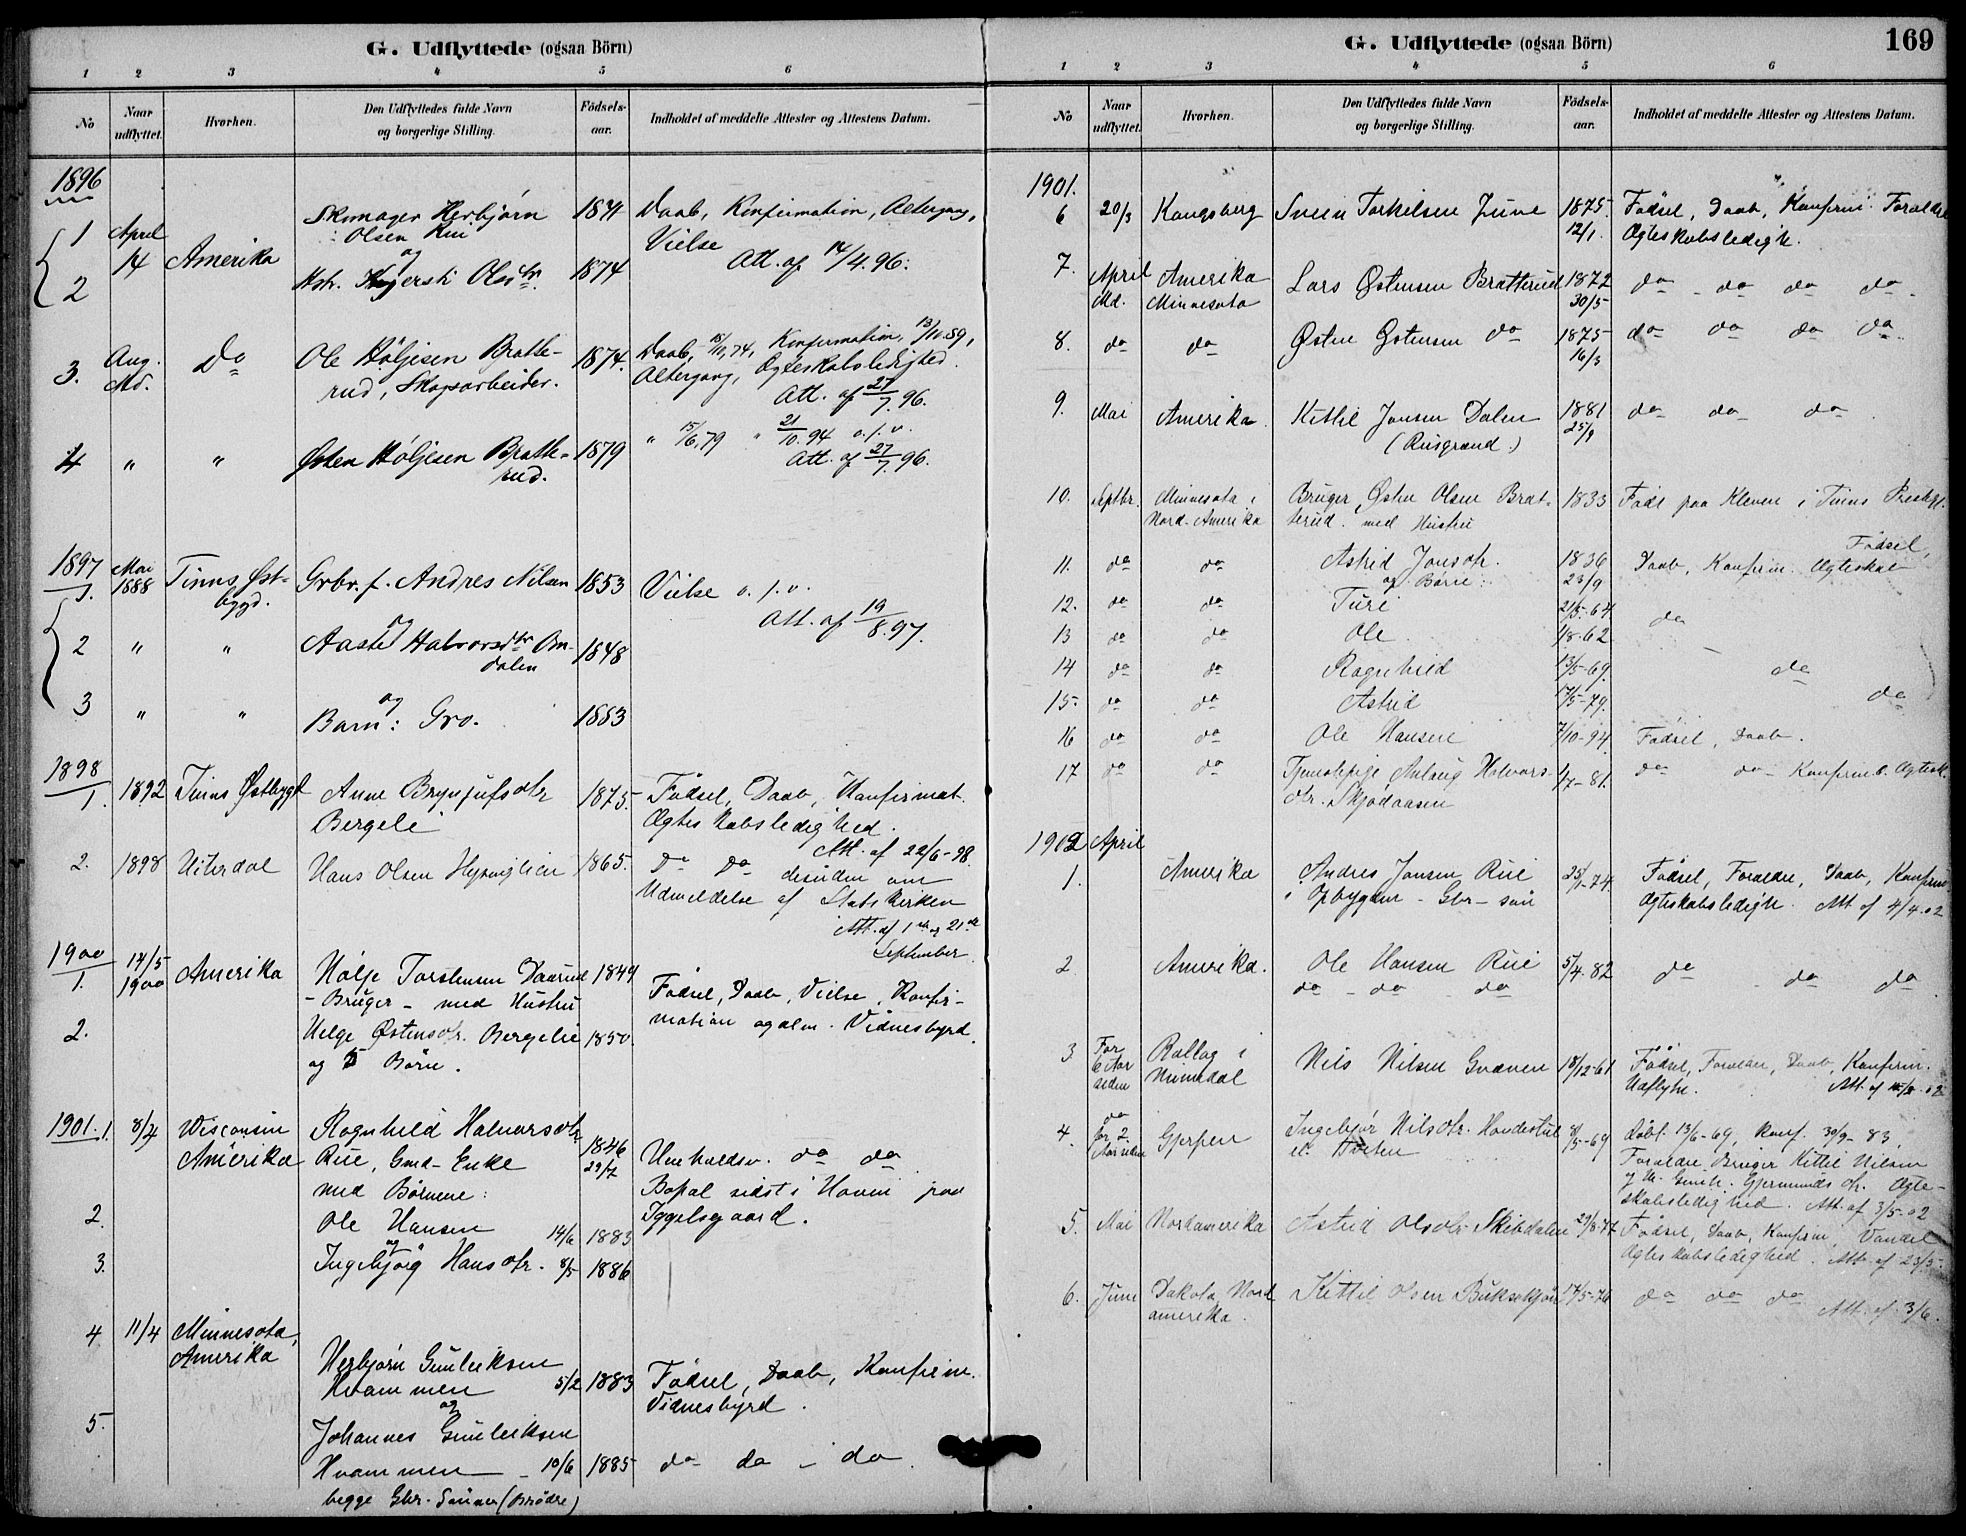 G. Udflyttede (ogsaa Börn)
1 2 3 4 5 6
No
Naar udflyttet.
Hvorhen.
Den Udflyttedes fulde Navn
og borgerlige Stilling.
Födsels-
aar.
Indholdet af meddelte Attester og Attestens Datum.
1896
1 April 14 Amerika Skomager Herbjörn 1841 Daab, Konfirmation, Altergang,
Olsen Rui Vielse
og Att. af 14/4.96.
2 Hstr. Kjersti Olsdtr. 1874
3. Aug. Md. Do Ole Höljesen Bratte- 1874. Daab, Konfirmation, 13/11.89,
rud, Skogsarbeider. Altergang, Ægteskabsledighed.
Att. af 27/7.96.
4 " " Østen Höljesen Bratte- 1879 " 15/6.79 " 21/10.94 o.s.v.
rud. Att. af 27/7.96.
1897
1. Mai 1888 Tinns Øst- Grbr. f. Andres Nilsen 1853 Vielse o.s.v.
bygd. og Att. af 19/8.97.
2 " " Aaste Halvorsdtr Om- 1848
dalen
og
3 " " Barn: Gro. 1883
1898
1. 1892 Tinns Østbygd Anne Brynjulfsdtr 1875 Födsel, Daab, Konfirmat.
Bergeli Ægteskabsledighed.
Att. af 22/6-98
2. 1898 Uvdal Hans Olsen 1865. Do Do desuden om
Udmeldelse af Statskirken
Att. af 1ste og 21de
September
1900
1. 14/5 1900 Amerika Hölje Torstensen Daarud 1849 Födsel, Daab, Vielse, Konfir-
- Bruger - med Hustru mation og alm. Vidnesbyrd.
2. Helge Østensdtr. Bergelie 1850.
og 5 Börn.
1901. 1. 8/4 Wisconsin Ragnhild Halvorsdtr 1846
Amerika Rue, Gmd-Enke 29/7 Umholdsv. do do
med Börnene: Bopæl sidst i Hovin paa
2. Ole Hansen 14/6 1883 Iggelsgaard.
og
3. Ingebjörg Hansdtr. 8/5 1886
4 11/4 Minnesota, Herbjörn Gunleiksen
Amerika Kvammen 5/2 1883 Födsel, Daab, Konfirm.
og Vidnesbyrd.
5. Johannes Gunleiksen
Hvammen - 10/6 1885 do do - do.
begge Gbr. Sönner (Brödre)
G. Udflyttede (ogsaa Börn) 169
1 2 3 4 5 6
No
Naar udflyttet.
Hvorhen.
Den Udflyttedes fulde Navn
og borgerlige Stilling.
Födsels-
aar.
Indholdet af meddelte Attester og Attestens Datum.
1901.
6 20/3 Kongsberg Svein Torkilsen Juve 1875. Födsel, Daab, Konfirm. Forældre
12/1. Ægteskabsledigh.
7. April Amerika Lars Østensen Bratterud 1872 do do do do
Md. Minnesota 30/5
8. do do Østen Østensen do 1875 do do do do
16/3
9. Mai Amerika Kittil Jonsen Dalen 1881 do do do
(Ruisgrænd.) 25/9
10. Septbr. Minnesota i Bruger, Østen Olsen Brat- 1833 Födt paa Kleven i Tinns Prestegj.
Nord-Amerika terud. med Hustru
11. do do Astrid Jonsdtr. 1836 Födsel,
og Börn: 23/9 Daab, Konfirm. Ægteskab
12. do do Turi 21/5-64 do
13 do do Ole 1/8-62
14 do do Ragnhild 13/5-69. do
15 do do Astrid 17/5-79. do
16 do do Ole Hansen 7/10-94. Födsel, Daab.
17 do do Tjenestepige Anlaug Halvors- 1/7-81. do do Konfirm. Ægtesk.
dtr. Skjödaasen
1902 April
1. Amerika Andres Jonsen Rui 25/1-74 Födsel, Forældre, Daab, Konfirm.
i Opbygden - Gbr-sön Ægteskabsledigh. Att. af 4/4.02
2 Amerika. Ole Hansen Rui 5/4.82 do do do
do - do - do
3 For 6 Aar siden Rollag i Nils Nilsen Gvæven 18/12-61 Födsel, Forældre, Daab, Konfirm.
Numedal Udflytn.
4. do for 2 Aar siden Gjerpen Ingebjör Nilsdtr. 8/5-69 Döbt. 13/6-69, Konf. 30/9-83.
Forældre Bruger Kittil Nilsen
Gjermundsdtr. Ægte-
skabsledighed. Att. af 3/5-02
5. Mai Nordamerika Astrid Olsdtr Skibdalen Födsel, Daab, Konfirm, Vandel
Ægteskabsledighed. Att. af 23/5.
6. Juni Dakota Nord Kittil Olsen 17/5-76 do do do
amerika. Att. af 3/6.